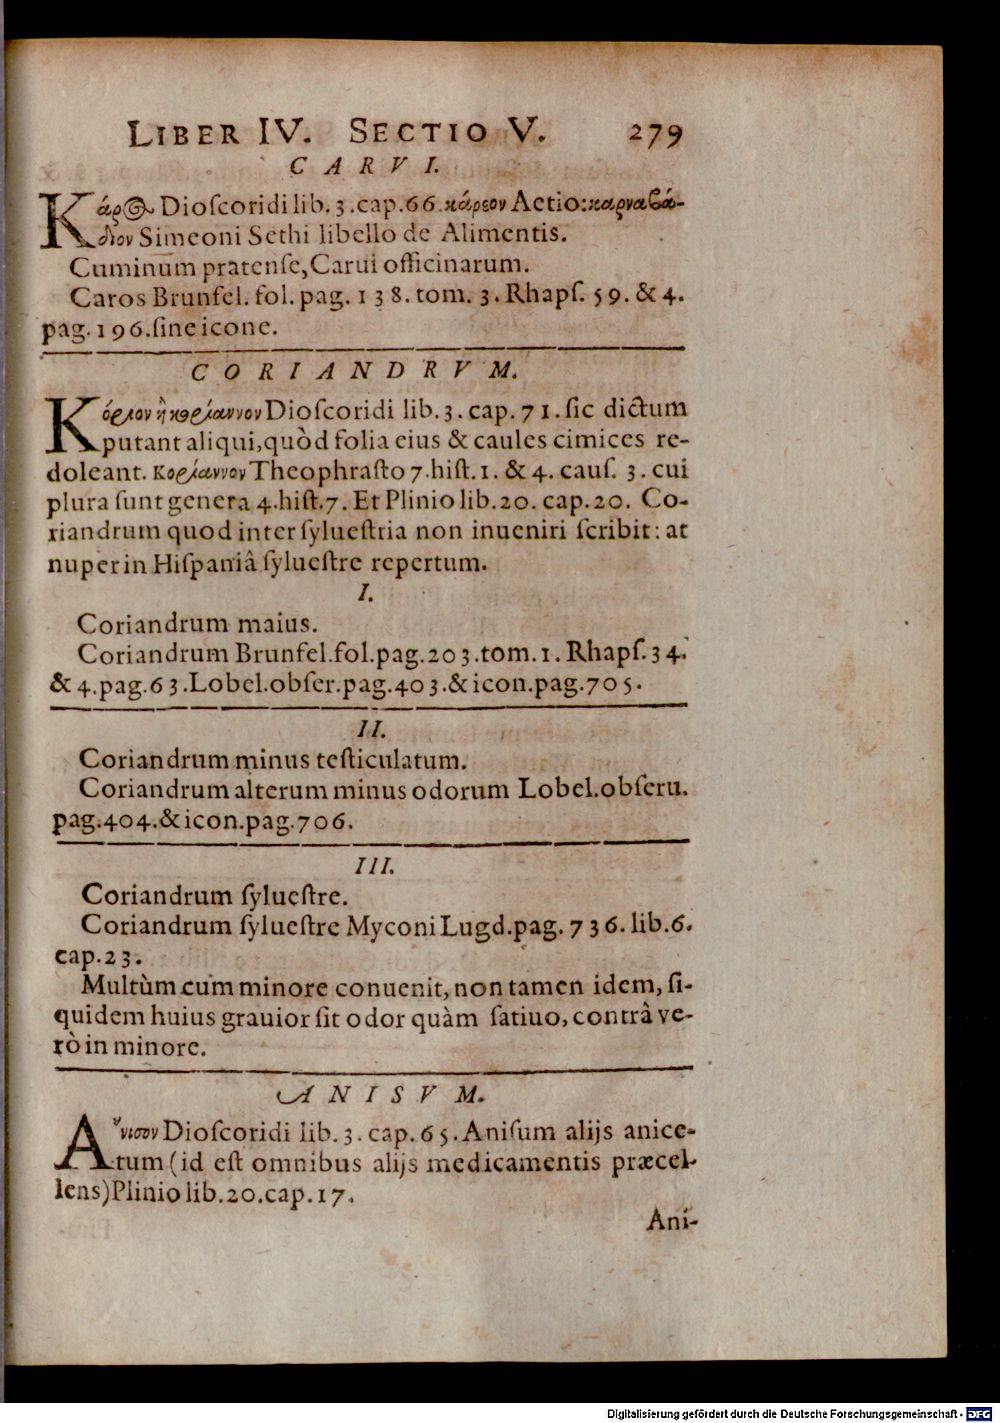 LIBER IV. SECTIO V. 279
CARVI.
Κάρος Dioſcoridi lib. 3. cap. 66. κάρεον Aetio: καρναβά-
διον Simeoni Sethi libello de Alimentis.
Cuminum pratenſe, Carui officinarum.
Caros Brunfel. fol. pag. 138. tom. 3. Rhapſ. 59. & 4.
pag. 196. ſine icone.
CORIANDRVM.
Κόριον ἢ κορίαννον Dioſcoridi lib. 3. cap. 71. ſic dictum
putant aliqui, quòd folia eius & caules cimices re-
doleant. Κορίαννον Theophraſto 7. hiſt. 1. & 4. cauſ. 3. cui
plura ſunt genera 4. hiſt. 7. Et Plinio lib. 20. cap. 20. Co-
riandrum quod inter ſylueſtria non inueniri ſcribit: at
nuper in Hiſpaniâ ſylueſtre repertum.
I.
Coriandrum maius.
Coriandrum Brunfel. fol. pag. 203. tom. 1. Rhapſ. 34.
& 4. pag. 63. Lobel. obſer. pag. 403. & icon. pag. 705.
II.
Coriandrum minus teſticulatum.
Coriandrum alterum minus odorum Lobel. obſeru.
pag. 404. & icon. pag. 706.
III.
Coriandrum ſylueſtre.
Coriandrum ſylueſtre Myconi Lugd. pag. 736. lib. 6.
cap. 23.
Multùm cum minore conuenit, non tamen idem, ſi-
quidem huius grauior ſit odor quàm ſatiuo, contrâ ve-
rò in minore.
ANISVM.
Ἄνισον Dioſcoridi lib. 3. cap. 65. Aniſum alijs anice-
tum (id eſt omnibus alijs medicamentis præcel-
lens) Plinio lib. 20. cap. 17.
Ani-
Digitalisierung gefördert durch die Deutsche Forschungsgemeinschaft - DFG